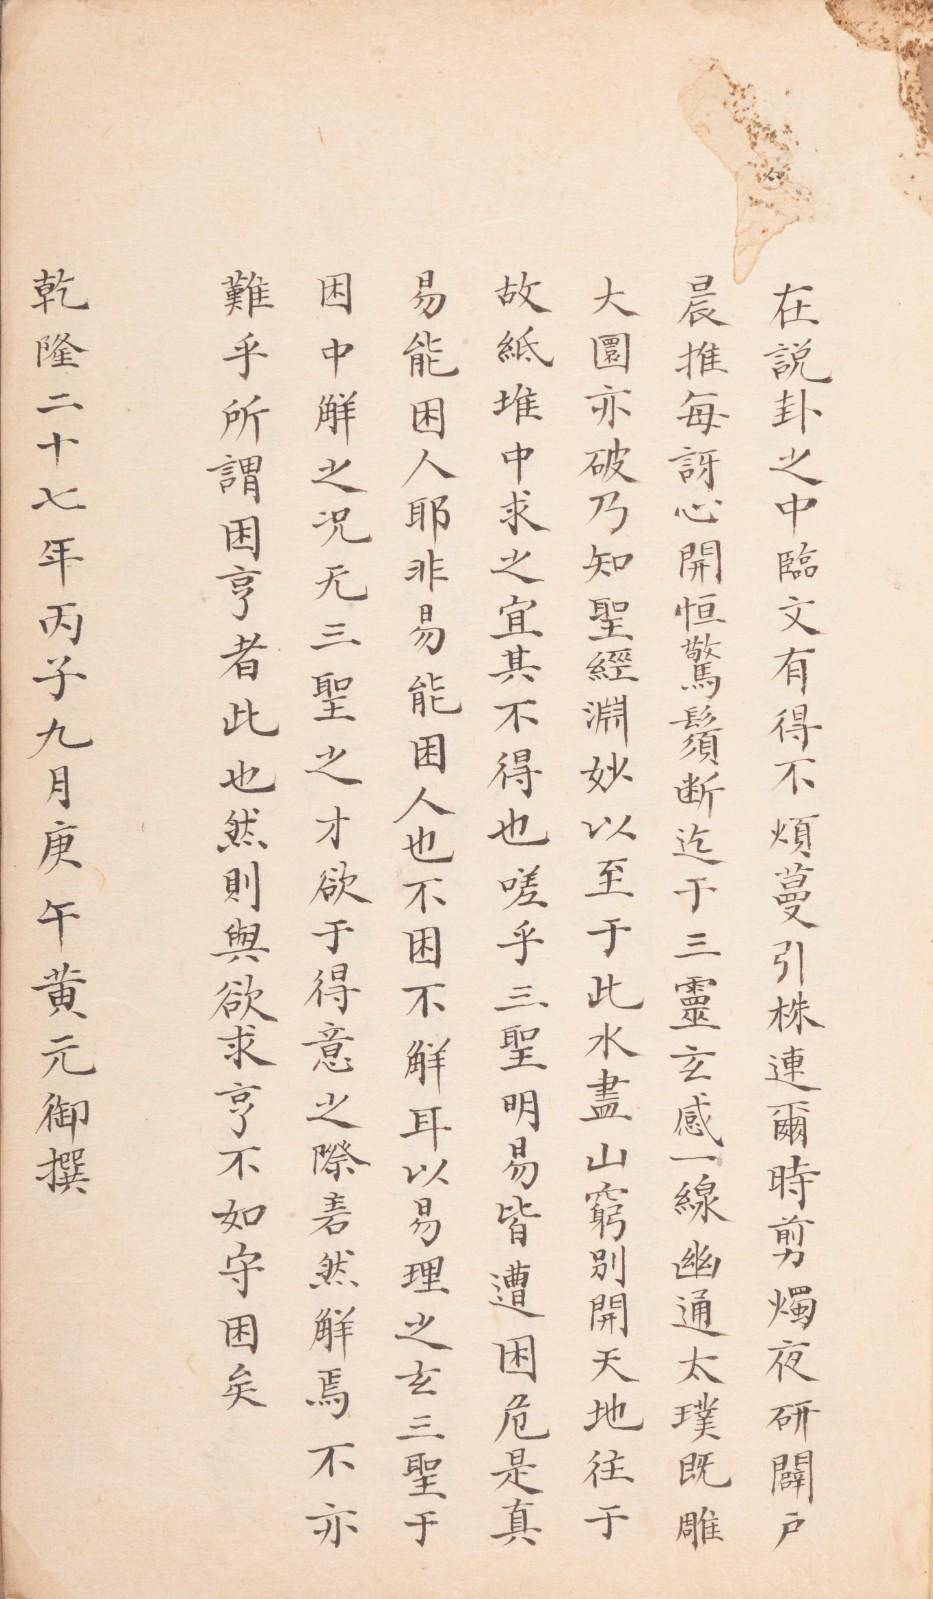 在說卦之中臨文有得不煩蔓引株連爾時剪燭夜研闢戶
晨推每訝心開恒驚鬚断迄于三靈玄感一線幽通太璞既雕
大圜亦破乃知聖經淵妙以至于此水盡山窮別開天地往于
故紙堆中求之宜其不得也嗟乎三聖明易皆遭困危是真
易能困人耶非易能困人也不困不解耳以易理之玄三聖于
困中解之况无三聖之才欲于得意之際砉然解焉不亦
難乎所謂困亨者此也然則與欲求亨不如守困矣
乾隆二十七年丙子九月庚午黄元御撰